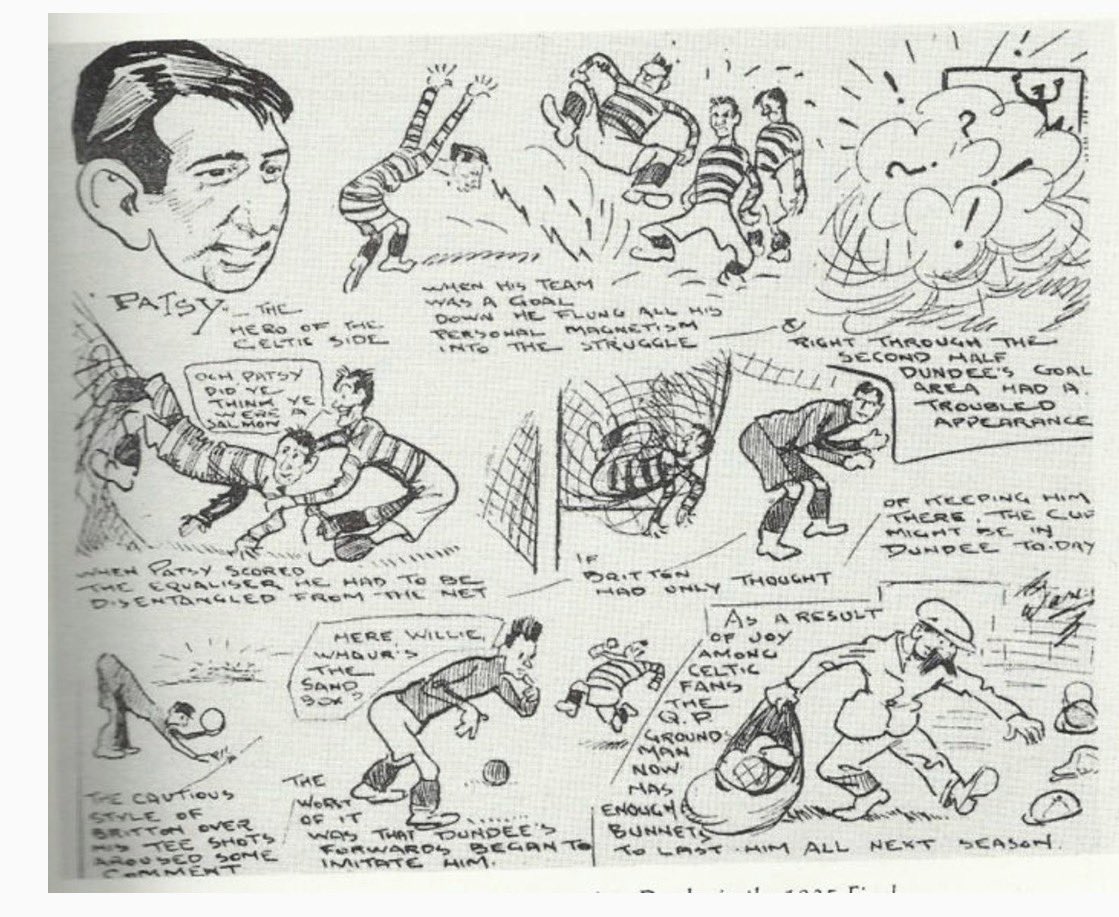 "PATSY" - THE
HERO OF THE
CELTIC SIDE
WHEN HIS TEAM
WAS A GOAL
DOWN HE FLUNG ALL HIS
PERSONAL MAGNETISM
INTO THE STRUGGLE
&
RIGHT THROUGH THE
SECOND HALF
DUNDEE'S GOAL
AREA HAD A
TROUBLED
APPEARANCE
OCH PATSY
DID YE
THINK YE
WERE A
SALMON
WHEN PATSY SCORED
THE EQUALISER HE HAD TO BE
DISENTANGLED FROM THE NET
IF
BRITTON
HAD ONLY THOUGHT
OF KEEPING HIM
THERE, THE CUP
MIGHT BE IN
DUNDEE TO-DAY
THE CAUTIOUS
STYLE OF
BRITTON OVER
HIS TEE SHOTS
AROUSED SOME
COMMENT
HERE, WILLIE,
WHAUR'S
THE
SAND
BOX?
THE
WORST
OF IT
WAS THAT DUNDEE'S
FORWARDS BEGAN TO
IMITATE HIM.
AS A RESULT
OF JOY
AMONG
CELTIC
FANS
THE
Q.P.
GROUNDS
MAN
NOW
HAS
ENOUGH
BUNNETS
TO LAST HIM ALL NEXT SEASON.
in the 1925 Final